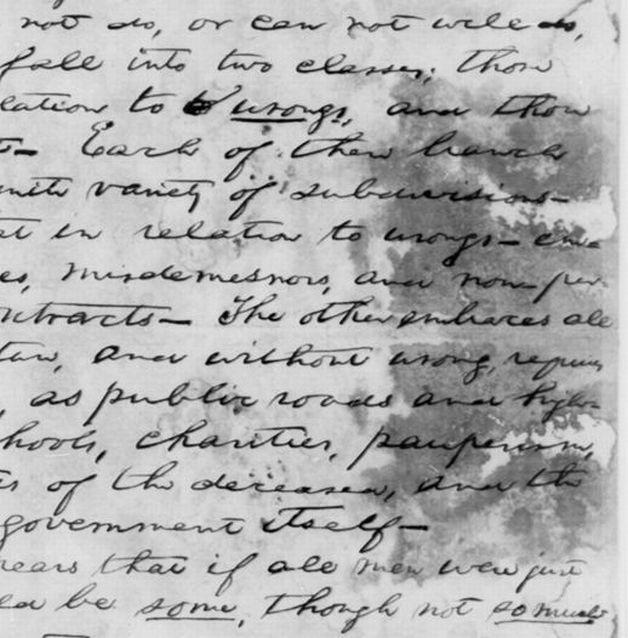 not do, or can not well do,
fall into two classes; those
lation to wrongs, and those
t— Each of these branch
nite variety of subdivisions—
at in relation to wrongs— em
es, misdemesnors, and non-per-
ntracts— The other embraces all
ture, and without wrong, requires
as public roads and high-
hools, charities, pauperism,
ts of the deceased, and the
government itself—
pears that if all men were just
ld be some, though not so much